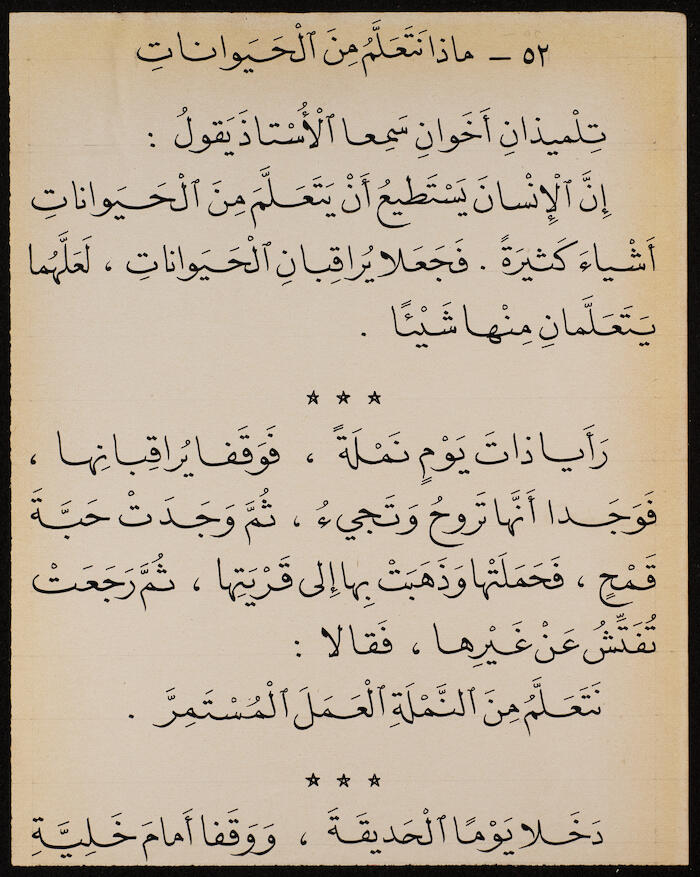 ٥٢ – ماذا نَتَعَلَّمُ مِنَ ٱلْحَيَواناتِ
تِلْميذانِ أَخَوانِ سَمِعا ٱلْأُسْتاذَ يَقولُ :
إِنَّ ٱلْإِنْسانَ يَسْتَطيعُ أَنْ يَتَعَلَّمَ مِنَ ٱلْحَيَواناتِ
أَشْياءَ كَثيرَةً . فَجَعَلا يُراقِبانِ ٱلْحَيَواناتِ ، لَعَلَّهُما
يَتَعَلَّمانِ مِنْها شَيْئًا .
☆ ☆ ☆
رَأَيا ذاتَ يَوْمٍ نَمْلَةً ، فَوَقَفا يُراقِبانِها ،
فَوَجَدا أَنَّها تَروحُ وَتَجيءُ ، ثُمَّ وَجَدَتْ حَبَّةَ
قَمْحٍ ، فَحَمَلَتْها وَذَهَبَتْ بِها إِلى قَرْيَتِها ، ثُمَّ رَجَعَتْ
تُفَتِّشُ عَنْ غَيْرِها ، فَقالا :
نَتَعَلَّمُ مِنَ ٱلنَّمْلَةِ ٱلْعَمَلَ ٱلْمُسْتَمِرَّ .
☆ ☆ ☆
دَخَلا يَوْمًا ٱلْحَديقَةَ ، وَوَقَفا أَمامَ خَلِيَّةِ